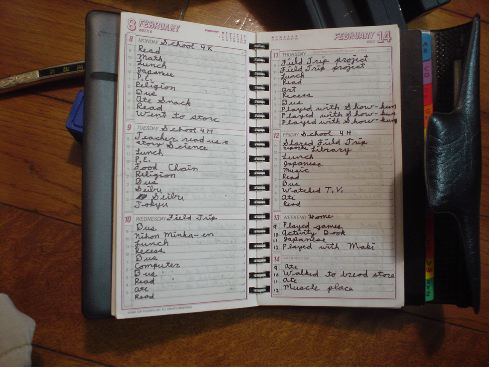 8 FEBRUARY
8 MONDAY School 4H
Read
Math
Lunch
Japanese
P.E.
Religion
Bus
Ate Snack
Read
Went to store
9 TUESDAY School 4H
Teacher read us a
story Science
Lunch
P.E.
Food Chain
Religion
Bus
Seibu
Seibu
Tokyu
10 WEDNESDAY Field Trip
Bus
Nihon Minka-en
Lunch
Recess
Bus
Computer
Bus
Read
ate
Read
FEBRUARY 14
11 THURSDAY
Field Trip project
Field Trip project
Lunch
Read
art
Recess
Bus
Played with Show-kun
Played with Show-kun
Played with Show-kun
12 FRIDAY School 4H
Shared Field Trip
Library
Lunch
Japanese
Music
Read
Bus
Watched T.V.
ate
Read
13 WEEKEND Home
9 Played games
10 Activity Book
11 Japanese
12 Played with Maki
14
9 ate
10 Walked to bread store
11 ate
12 Muscle place